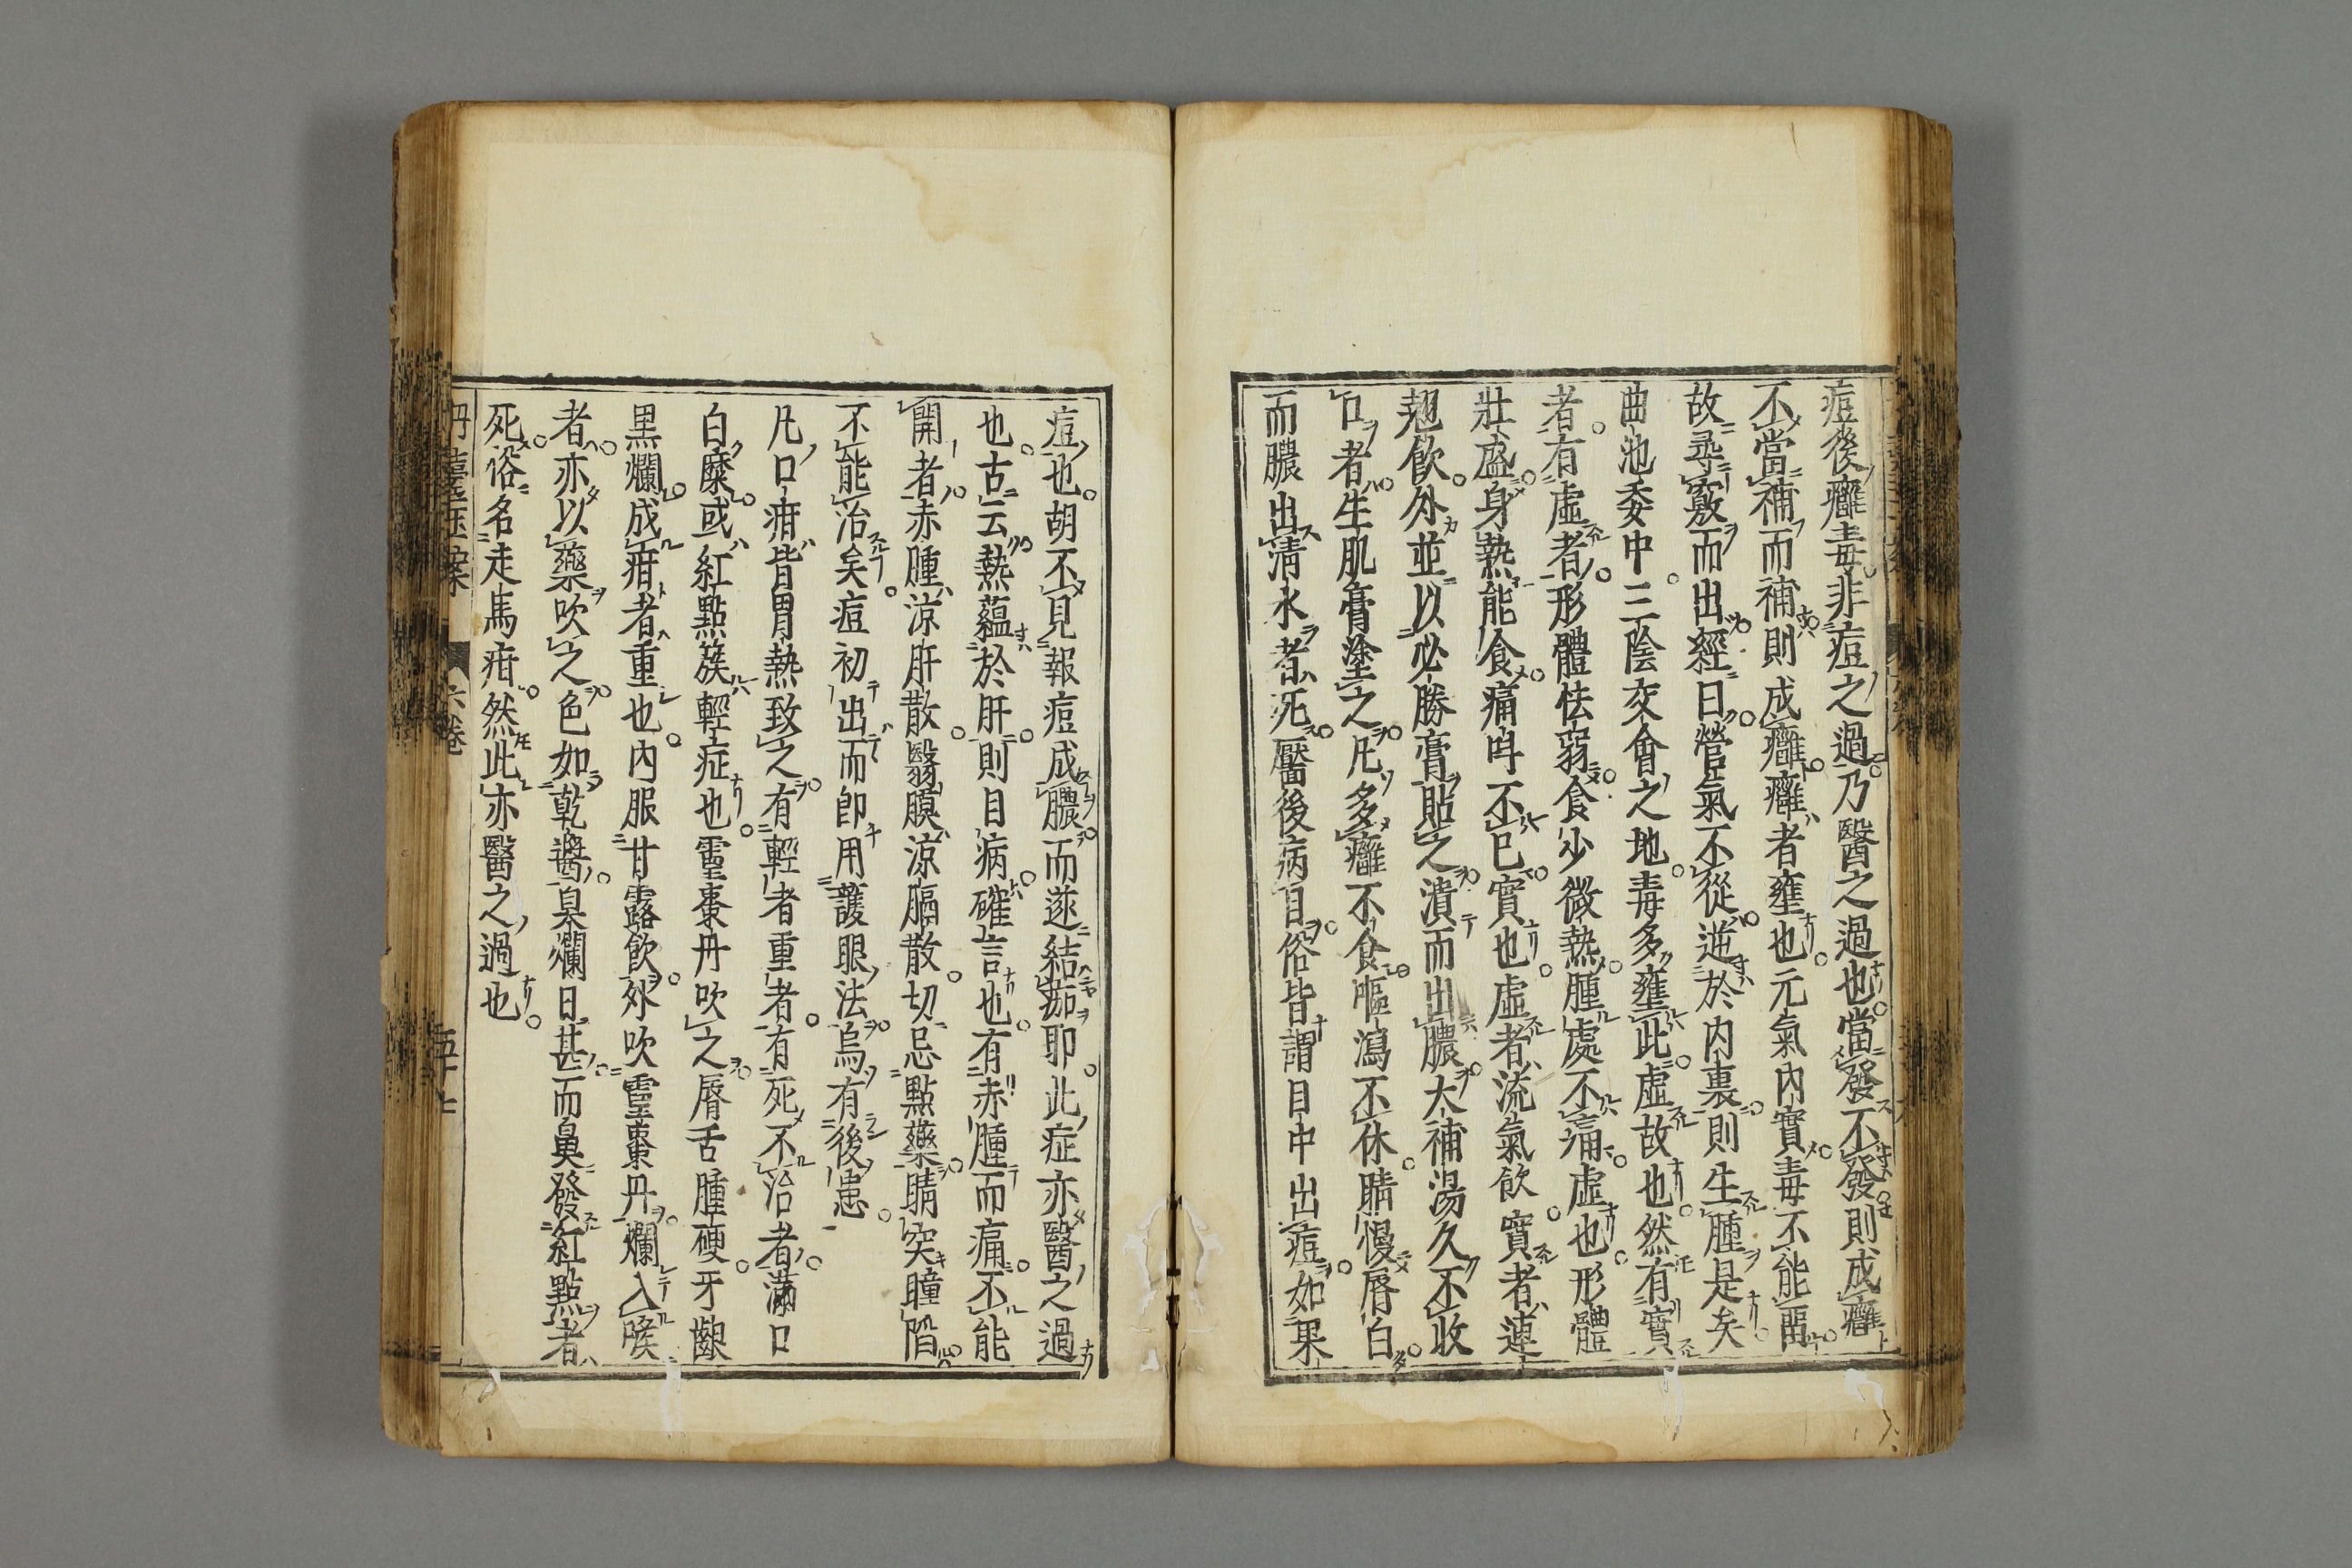 痘後癰毒非痘之過乃醫之過也當發不發則成癰
不當補而補則成癰癰者壅也元氣內實毒不能留
故尋竅而出經曰營氣不從逆於內裏則生腫是矣
曲池委中三陰交會之地毒多壅此虛故也然有實
者有虛者形體怯弱食少微熱腫處不痛虛也形體
壯盛身熱能食痛呌不已實也虛者流氣飲實者連
翹飲外並以必勝膏貼之潰而出膿大補湯久不收
口者生肌膏塗之凡多癰不食嘔瀉不休睛慢唇白
而膿出清水者死靨後病目俗皆謂目中出痘如果
痘也胡不見報痘成膿而遂結痂耶此症亦醫之過
也古云熱蘊於肝則目病確言也有赤腫而痛不能
開者赤腫涼肝散翳膜涼膈散切忌點藥睛突瞳陷
不能治矣痘初出而即用護眼法烏有後患
凡口疳皆胃熱致之有輕者重者有死不治者滿口
白糜或紅點簇輕症也靈棗丹吹之唇舌腫硬牙齦
黑爛成疳者重也內服甘露飲外吹靈棗丹爛入喉
者亦以藥吹之色如乾醬臭爛日甚而鼻發紅點者
死俗名走馬疳然此亦醫之過也
丹臺玉案
六卷
五十七